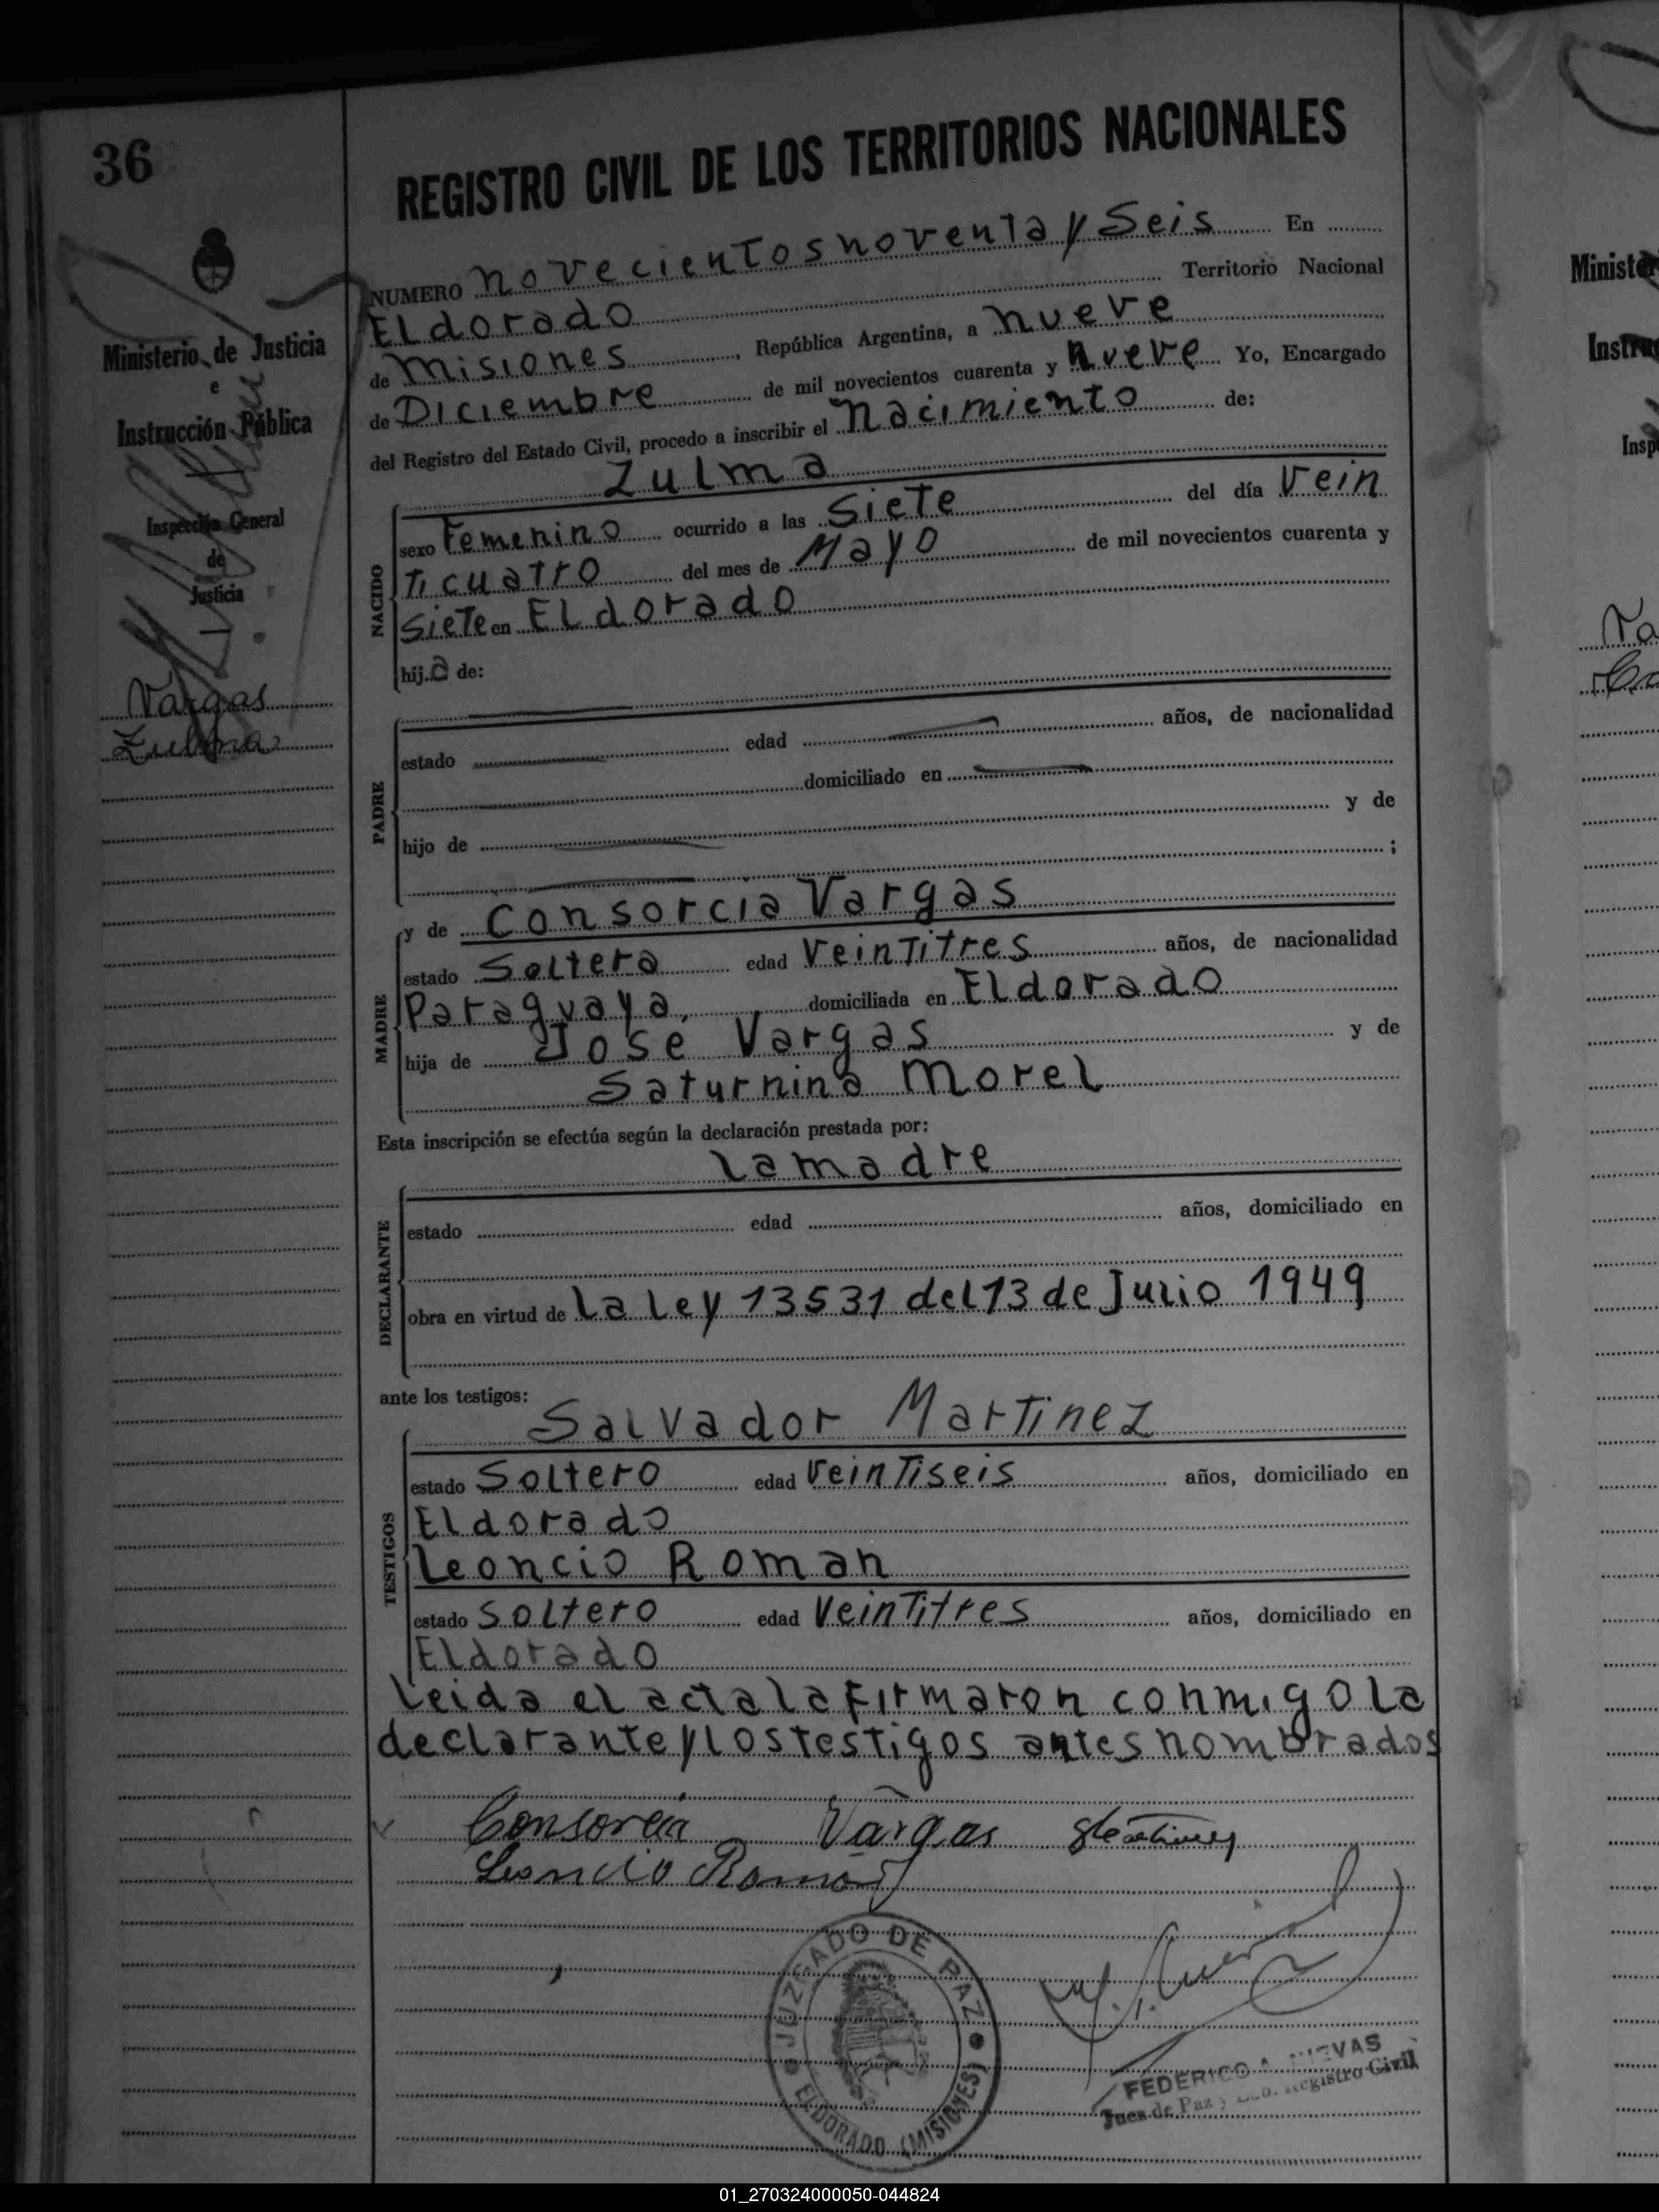 36
REGISTRO CIVIL DE LOS TERRITORIOS NACIONALES
NUMERO novecientosnoventa y Seis En
Eldorado Territorio Nacional
de Misiones, República Argentina, a nueve
de Diciembre de mil novecientos cuarenta y nueve Yo, Encargado
del Registro del Estado Civil, procedo a inscribir el nacimiento de:
Ministerio de Justicia
e
Instrucción Pública
Inspección General
de
Justicia
Vargas
Zulma
Zulma
NACIDO
sexo Femenino ocurrido a las Siete del día Vein
Ticuatro del mes de Mayo de mil novecientos cuarenta y
Siete en Eldorado
hija de:
PADRE
estado edad años, de nacionalidad
domiciliado en
hijo de y de
;
MADRE
y de Consorcia Vargas
estado Soltera edad VeinTitres años, de nacionalidad
Paraguaya, domiciliada en Eldorado
hija de Jose Vargas y de
Saturnina Morel
Esta inscripción se efectúa según la declaración prestada por:
la madre
DECLARANTE
estado edad años, domiciliado en
obra en virtud de La Ley 13531 del 13 de Julio 1949
ante los testigos:
Salvador Martinez
TESTIGOS
estado Soltero edad VeinTiseis años, domiciliado en
Eldorado
Leoncio Roman
estado Soltero edad VeinTitres años, domiciliado en
Eldorado
Leida el acta la firmaron conmigo la
declarante y los testigos antes nombrados
Consorcia Vargas
Leoncio Roman
JUZGADO DE PAZ
ELDORADO (MISIONES)
FEDERICO A.
Juez de Paz y Registro Civil
Minist
Instru
Insp
01_270324000050-044824